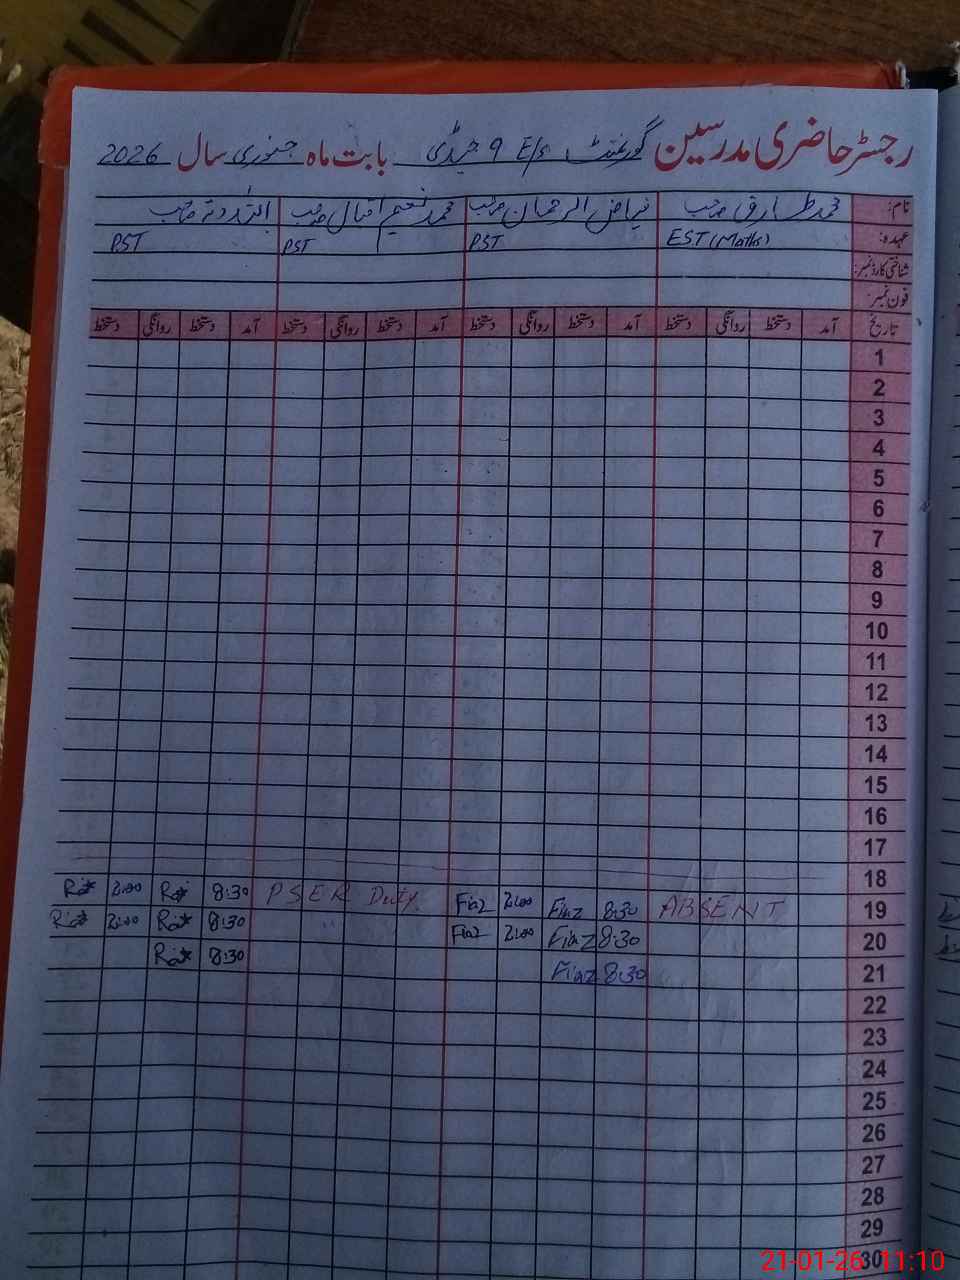 رجسٹر حاضری مدرسین گورنمنٹ E/s 9 بابت ماہ جنوری سال 2026
نام: محمد طارق صاحب فیاض الرحمان صاحب محمد نعیم اقبال صاحب اللہ دتہ صاحب
عہدہ: EST (Maths) PST PST PST
شناختی کارڈ نمبر:
فون نمبر:
تاریخ آمد دستخط روانگی دستخط آمد دستخط روانگی دستخط آمد دستخط روانگی دستخط آمد دستخط روانگی دستخط
1
2
3
4
5
6
7
8
9
10
11
12
13
14
15
16
17
18
19 ABSENT 8:30 Fiaz 2:00 Fiaz PSER Duty 8:30 2:00
20 8:30 Fiaz 2:00 Fiaz 8:30 2:00
21 8:30 Fiaz 8:30
22
23
24
25
26
27
28
29
30
21-01-26 11:10